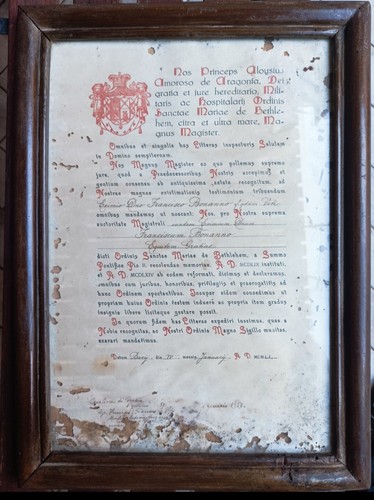 Nos Princeps Aloysius
Amoroso de Aragonia, Dei
gratia et iure hereditario, Mili-
taris ac Hospitalarij Ordinis
Sanctae Mariae de Bethle-
hem, citra et ultra mare, Ma-
gnus Magister.
Omnibus et singulis has Litteras inspecturis Salutem
in Domino sempiternam.
Nos Magnus Magister ex quo pollemus supremo
iure, quod a Praedecessoribus Nostris accepimus et
gestium consensu ab antiquissima aetate recognitum, ad
Nostrae magnae existimationis testimonium tribuendum
Francisco Bonanno
omnibus mandamus ut exesset: Nos, pro Nostra suprema
auctoritate Magistrali
Franciscum Bonanno
Equitem Gratiae
dicti Ordinis Sanctae Mariae de Bethlehem, a Summo
Pontifice Pio II. recolendae memoriae, A. D. MCDLIX instituti,
et A. D. MCDLXIV ab eodem reformati, dicimus et declaramus,
omnibus cum iuribus, honoribus, privilegiis et praerogativis ad
hunc Ordinem spectantibus. Iamque eidem concedimus ut
propriam huius Ordinis vestem induere ac propria item gradus
insignia libere liciteque gestare possit.
In quorum fidem has Litteras expediri iussimus, quas a
Nobis recognitas, ac Nostri Ordinis Magno Sigillo munitas,
exarari mandavimus.
Datum Barij, die 20 mensis Januarij A. D. MCMLI.